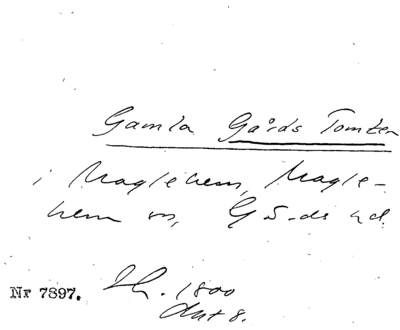 Gamla Gårds Tomten
i Maglehem, Magle-
hem sn, Gärds hd.
Nr 7897.
1800
Akt 8.